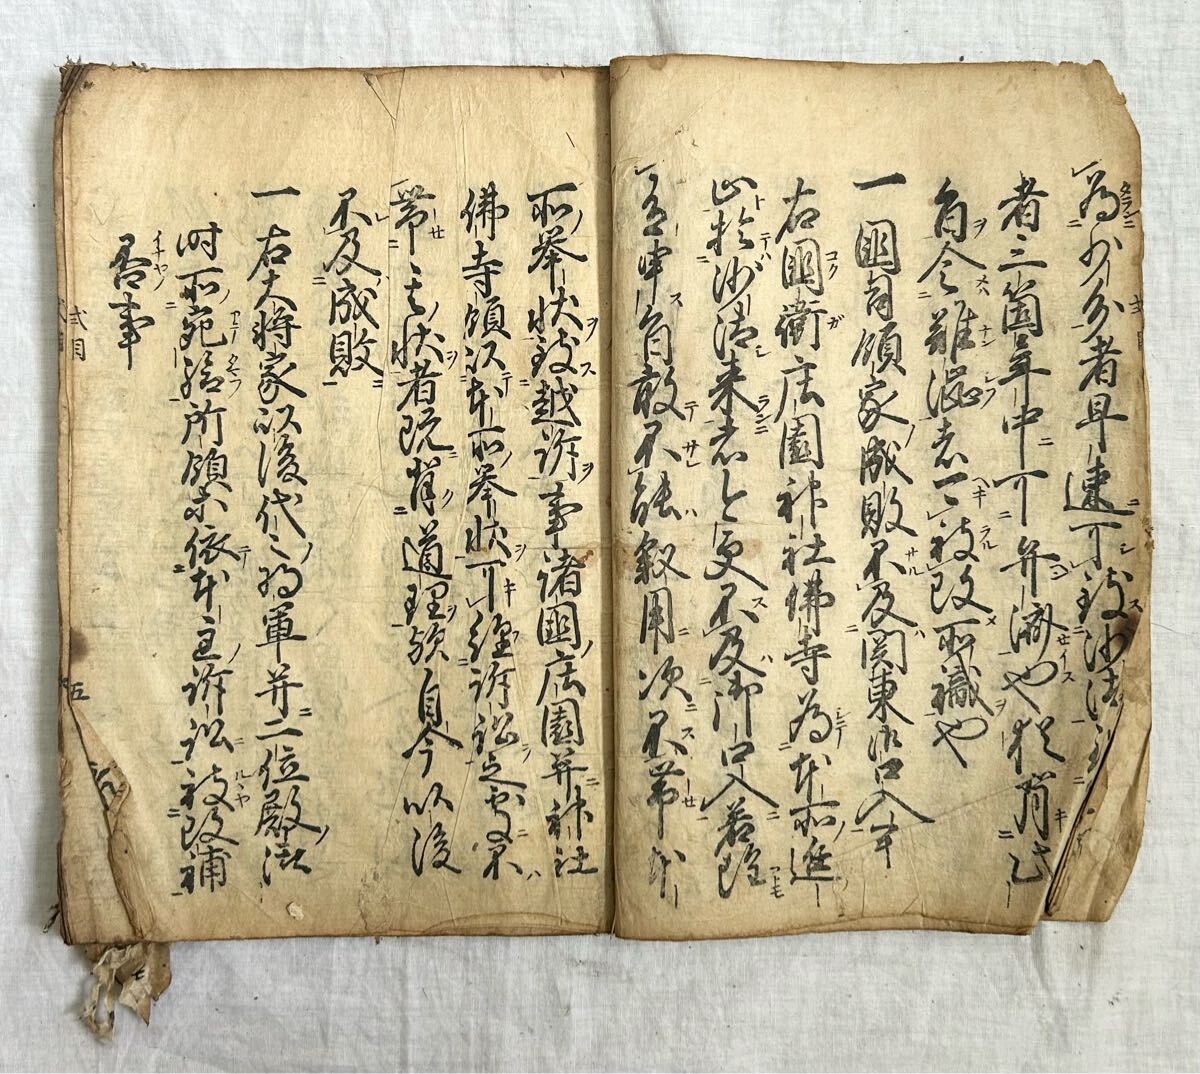 為少分者早速可致沙汰至
者三箇年中可弁済也猶背此
旨令難渋者可被改所職也
一 國司領家成敗不及関東御口入事
右國衙庄園神社佛寺為本所進
止於沙汰来者今更不及御口入若雖
有申旨敢不能叙用次不帯本
所挙状致越訴事諸國庄園并神社
佛寺領以本所挙状可経訴訟之処不
帯其状者既背道理欤自今以後
不及成敗
一 右大将家以後代々将軍并二位殿御
時所宛給所領等依本主訴訟被改補
否事
弐目
五